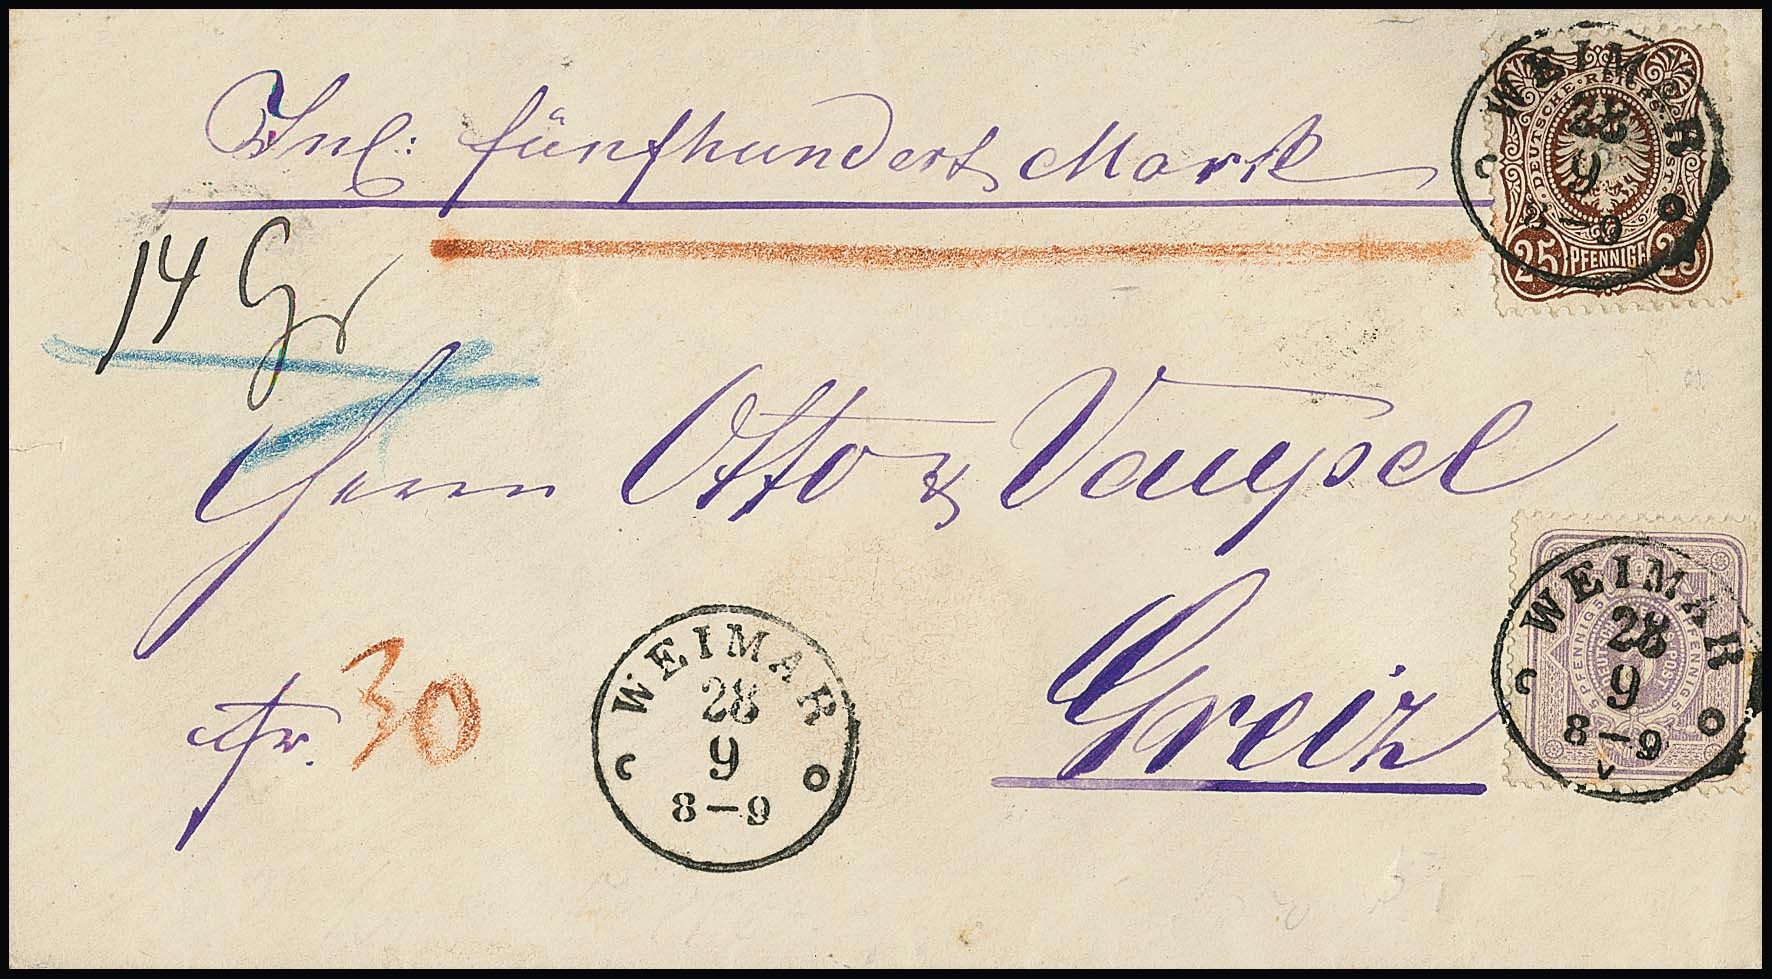 Inl: fünfhundert Mark
14 Gr
Herrn Otto & Vaupel
Greiz
fr. 30
WEIMAR
28
9
8–9
DEUTSCHE REICHS-POST
25 PFENNIGE 25
WEIMAR
28
9
5 PFENNIG 5
PFENNIG 5
DEUTSCHE REICHS-POST
WEIMAR
28
9
8–9
V